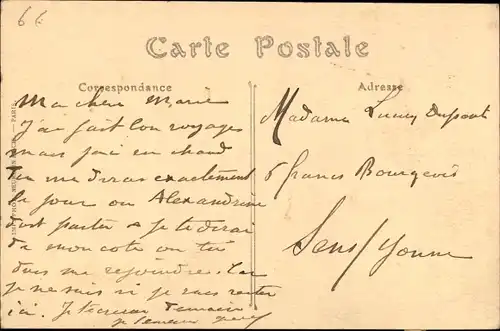 66
Carte Postale
Correspondance
Adresse
Ma chère Marie
J'ai fait bon voyages
mais j'ai eu chaud
tu me diras exactement
le jour ou Alexandrine
doit partir & je te dirai
de mon coté ou tu
dois me rejoindre. Car
je ne sais si je vais rester
ici. Je t'écrirai demain
je
Madame Lucien Dupont
6 francs Bourgeois
Sens / Yonne